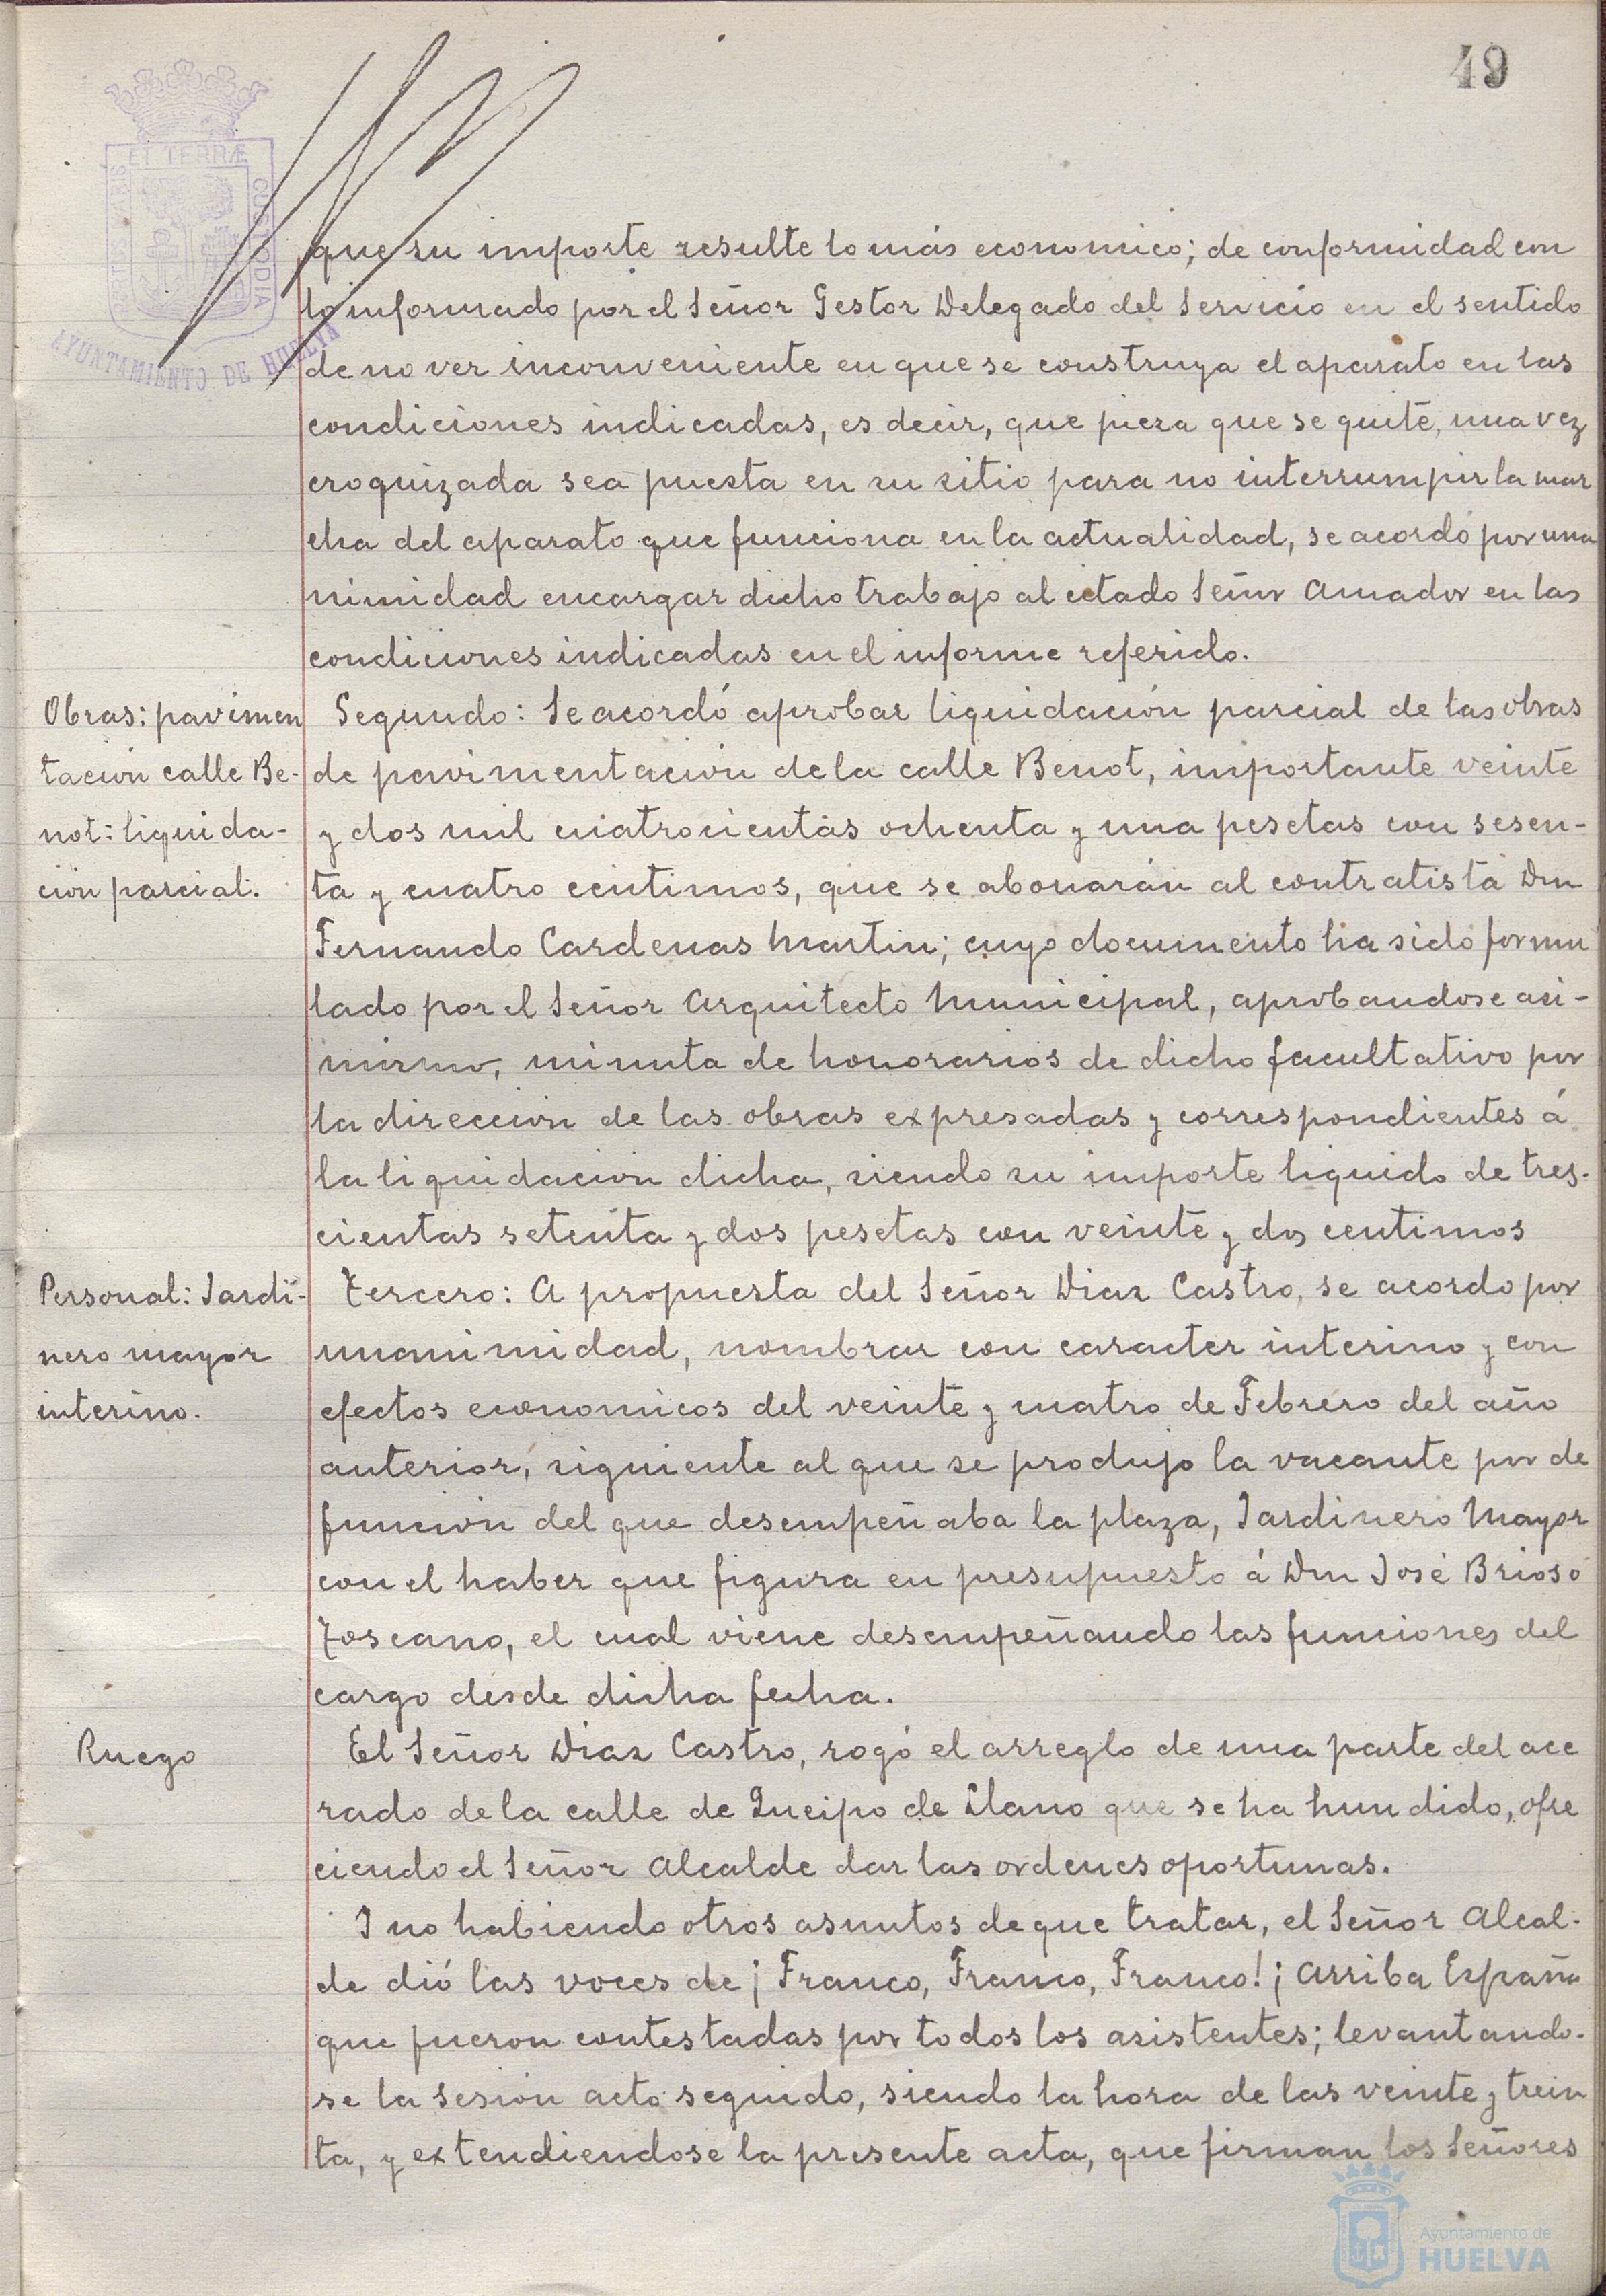 49
ET TERRÆ
CUSTODIA
AYUNTAMIENTO DE HUELVA
que su importe resulte lo más economico; de conformidad con
lo informado por el Señor Gestor Delegado del Servicio en el sentido
de no ver inconveniente en que se construya el aparato en las
condiciones indicadas, es decir, que pieza que se quite, una vez
croquizada sea puesta en su sitio para no interrumpir la mar
cha del aparato que funciona en la actualidad, se acordó por una
nimidad encargar dicho trabajo al citado Señor Amador en las
condiciones indicadas en el informe referido.
Obras: pavimen
tacion calle Be-
not: liquida-
ción parcial.
Segundo: Se acordó aprobar liquidación parcial de las obras
de pavimentacion de la calle Benot, importante veinte
y dos mil cuatrocientas ochenta y una pesetas con sesen-
ta y cuatro centimos, que se abonarán al contratista Don
Fernando Cardenas Martin; cuyo documento ha sido formu
lado por el Señor Arquitecto Municipal, aprobandose asi-
mismo, minuta de honorarios de dicho facultativo por
la direccion de las obras expresadas y correspondientes á
la liquidacion dicha, siendo su importe liquido de tres-
cientas setenta y dos pesetas con veinte y dos centimos
Personal: Jardi-
nero mayor
interino.
Tercero: A propuesta del Señor Diaz Castro, se acordo por
unanimidad, nombrar con caracter interino y con
efectos economicos del veinte y cuatro de Febrero del año
anterior, siguiente al que se produjo la vacante por de
funcion del que desempeñaba la plaza, Jardinero Mayor
con el haber que figura en presupuesto á Don José Brioso
Toscano, el cual viene desempeñando las funciones del
cargo desde dicha fecha.
Ruego
El Señor Diaz Castro, rogó el arreglo de una parte del ace
rado de la calle de Queipo de Llano que se ha hundido, ofre
ciendo el Señor Alcalde dar las ordenes oportunas.
Y no habiendo otros asuntos de que tratar, el Señor Alcal-
de dió las voces de ¡Franco, Franco, Franco! ¡Arriba España
que fueron contestadas por todos los asistentes; levantando-
se la sesión acto seguido, siendo la hora de las veinte y trein
ta, y extendiendose la presente acta, que firman los Señores
Ayuntamiento de
HUELVA